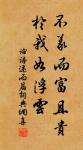 不義而富且貴
於我如浮雲
論語述而篇詞典網書